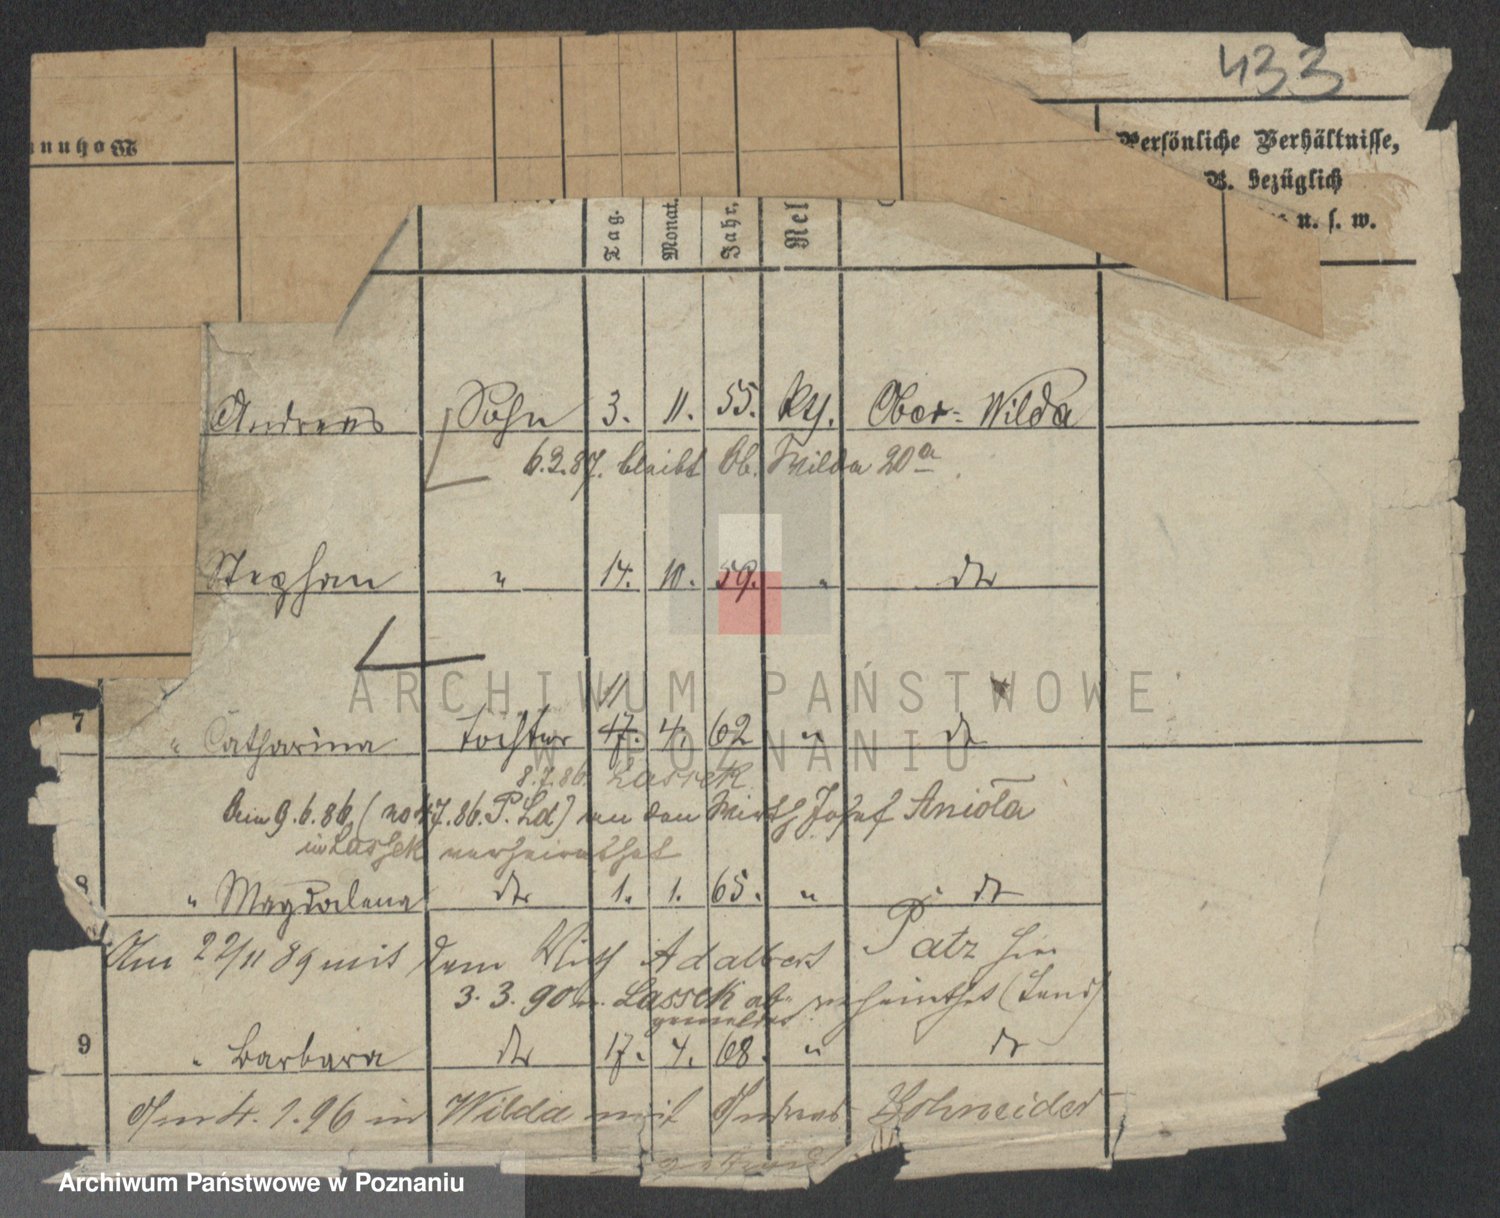 433
Persönliche Verhältnisse,
z. B. bezüglich
u. s. w.
Wohnun
Tag. Monat. Jahr. Rel
Andreas Sohn 3. 11. 55. kth. Ober-Wilda
6.2.87. bleibt Ob. Wilda 20a
Stephan " 14. 10. 59. " dto
11
7 " Catharina Tochter 17. 4. 62 " dto
8.7.86. Lassek
Am 9.6.86. (No 47.86. P. Ld) an den Wirth Josef Aniola
in Lassek verheirathet
8 " Magdalena dto 1. 1. 65. " dto
Am 22/11 89 mit dem Wirth Adalbert Patz hier
3.3.90 n. Lassek ab- verheirathet (Land)
gemeldet
9 " Barbara dto 17. 4. 68. " dto
Am 4.2.96 in Wilda mit Andreas Schneider
ARCHIWUM PAŃSTWOWE
W POZNANIU
Archiwum Państwowe w Poznaniu